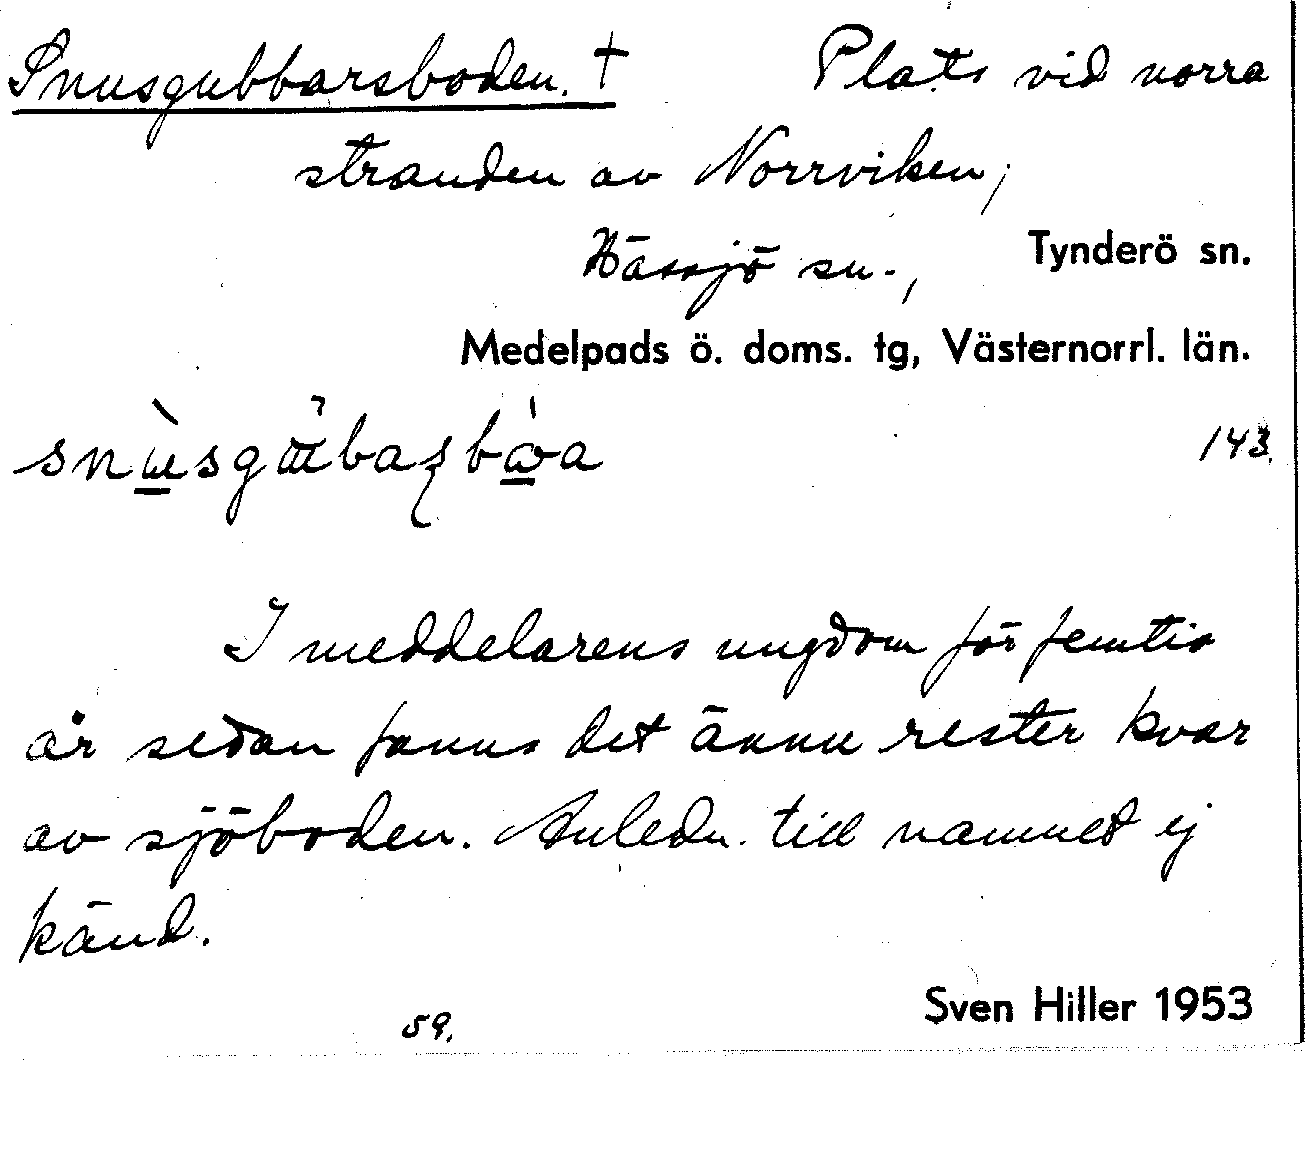 Snusgubbarsboden. † Plats vid norra
stranden av Norrviken,
Hässjö sn., Tynderö sn.
Medelpads ö. doms. tg, Västernorrl. län.
143.
I meddelarens ungdom för femtio
år sedan fanns det ännu rester kvar
av sjöboden. Anledn. till namnet ej
känd.
Sven Hiller 1953
59.